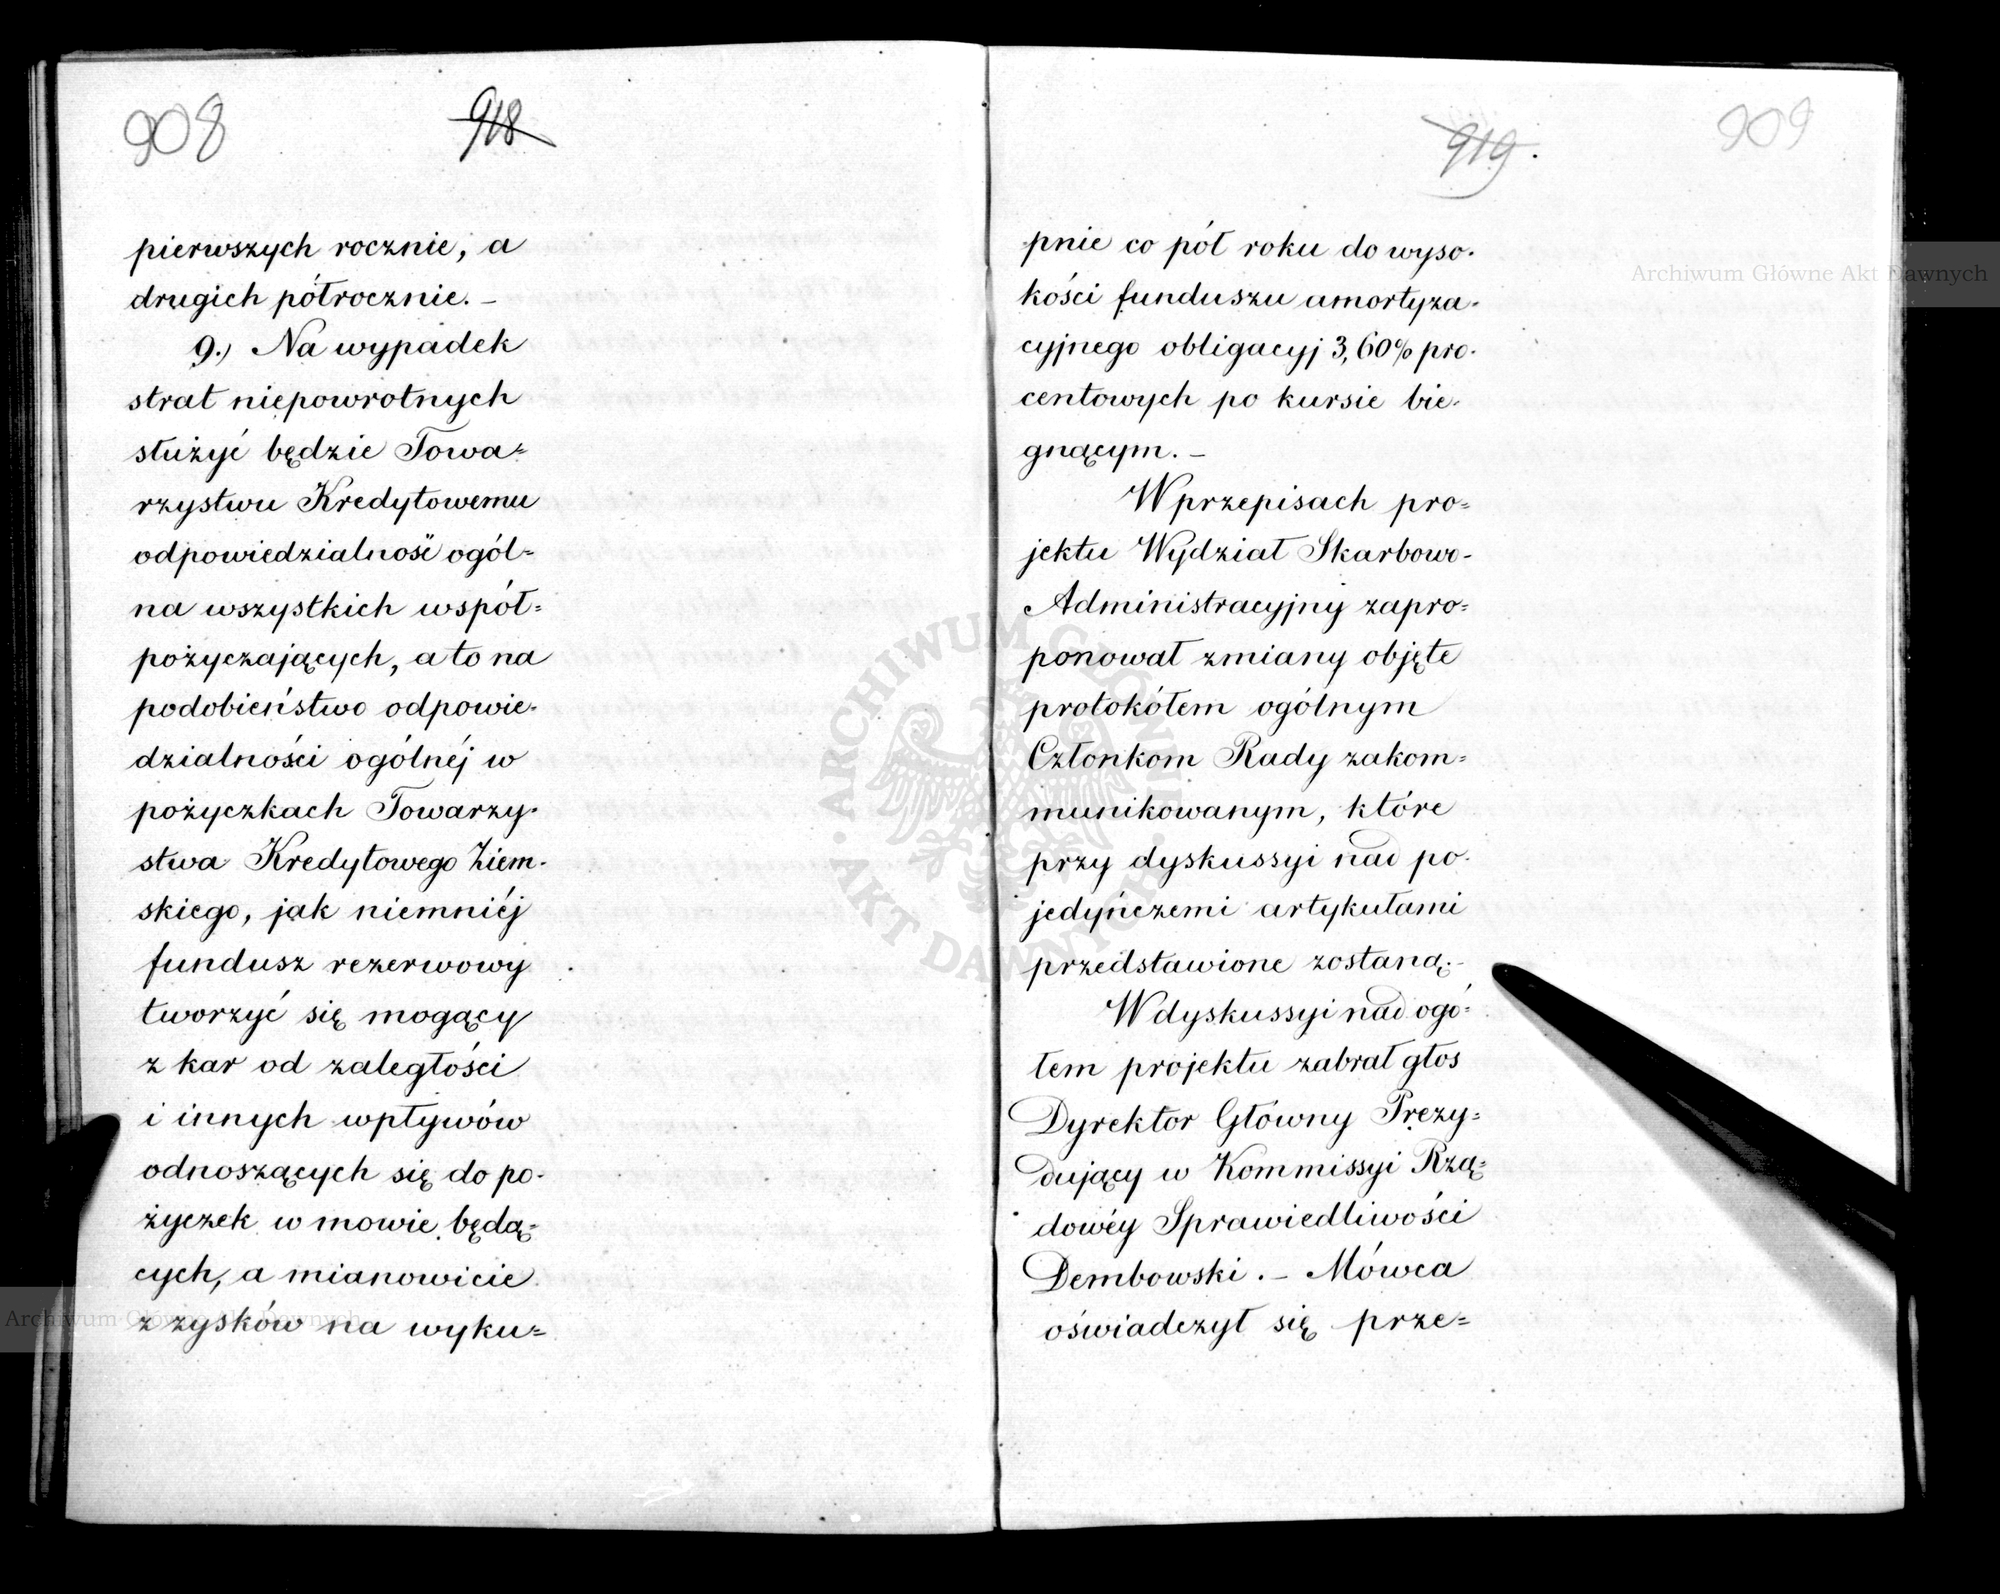 908
918
pierwszych rocznie, a
drugich półrocznie. –
9.) Na wypadek
strat niepowrotnych
służyć będzie Towa=
rzystwu Kredytowemu
odpowiedzialność ogól=
na wszystkich współ=
pożyczających, a to na
podobieństwo odpowie-
dzialności ogólnéj w
pożyczkach Towarzy-
stwa Kredytowego Ziem-
skiego, jak niemniéj
fundusz rezerwowy
tworzyć się mogący
z kar od zaległości
i innych wpływów
odnoszących się do po-
życzek w mowie będą=
cych, a mianowicie
z zysków na wyku=
909
919.
pnie co pół roku do wyso-
kości funduszu amortyza-
cyjnego obligacyj 3,60% pro-
centowych po kursie bie-
gnącym. –
W przepisach pro=
jektu Wydział Skarbowo-
Administracyjny zapro=
ponował zmiany objęte
protokółem ogólnym
Członkom Rady zakom=
munikowanym, które
przy dyskussyi nad po-
jedyńczemi artykułami
przedstawione zostaną. –
W dyskussyi nad ogó=
łem projektu zabrał głos
Dyrektor Główny Prezy=
dujący w Kommissyi Rzą=
dowéy Sprawiedliwości
Dembowski. – Mówca
oświadczył się prze=
Archiwum Główne Akt Dawnych
Archiwum Główne Akt Dawnych
· ARCHIWUM GŁÓWNE · AKT DAWNYCH